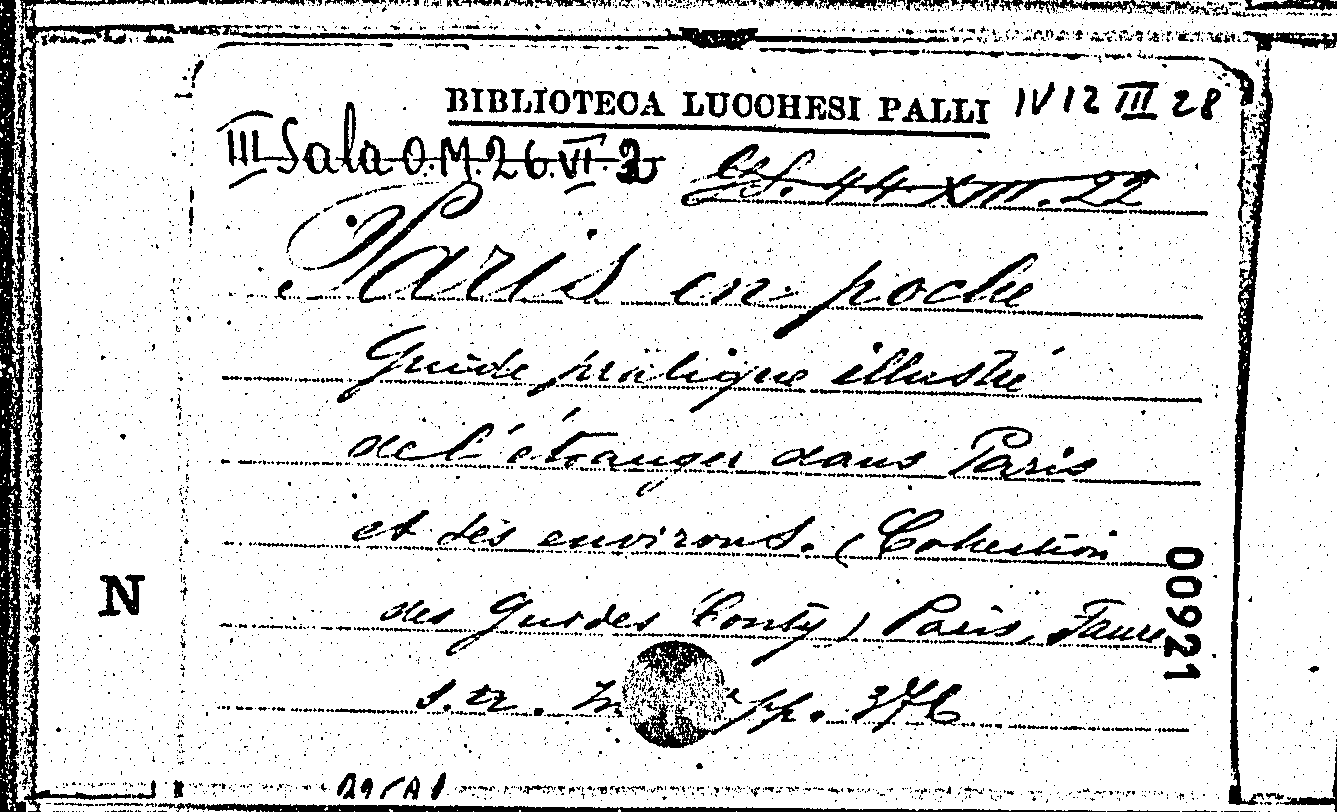 BIBLIOTECA LUCCHESI PALLI IV 12 III 28
III Sala O.M. 26. VI. 3
G.S. 44 XIII. 22
Paris en poche
Guide pratique illustré
de l'étranger dans Paris
et ses environs. (Collection
des Guides Conty) Paris, Faure
s. a. In pp. 376
N
00921